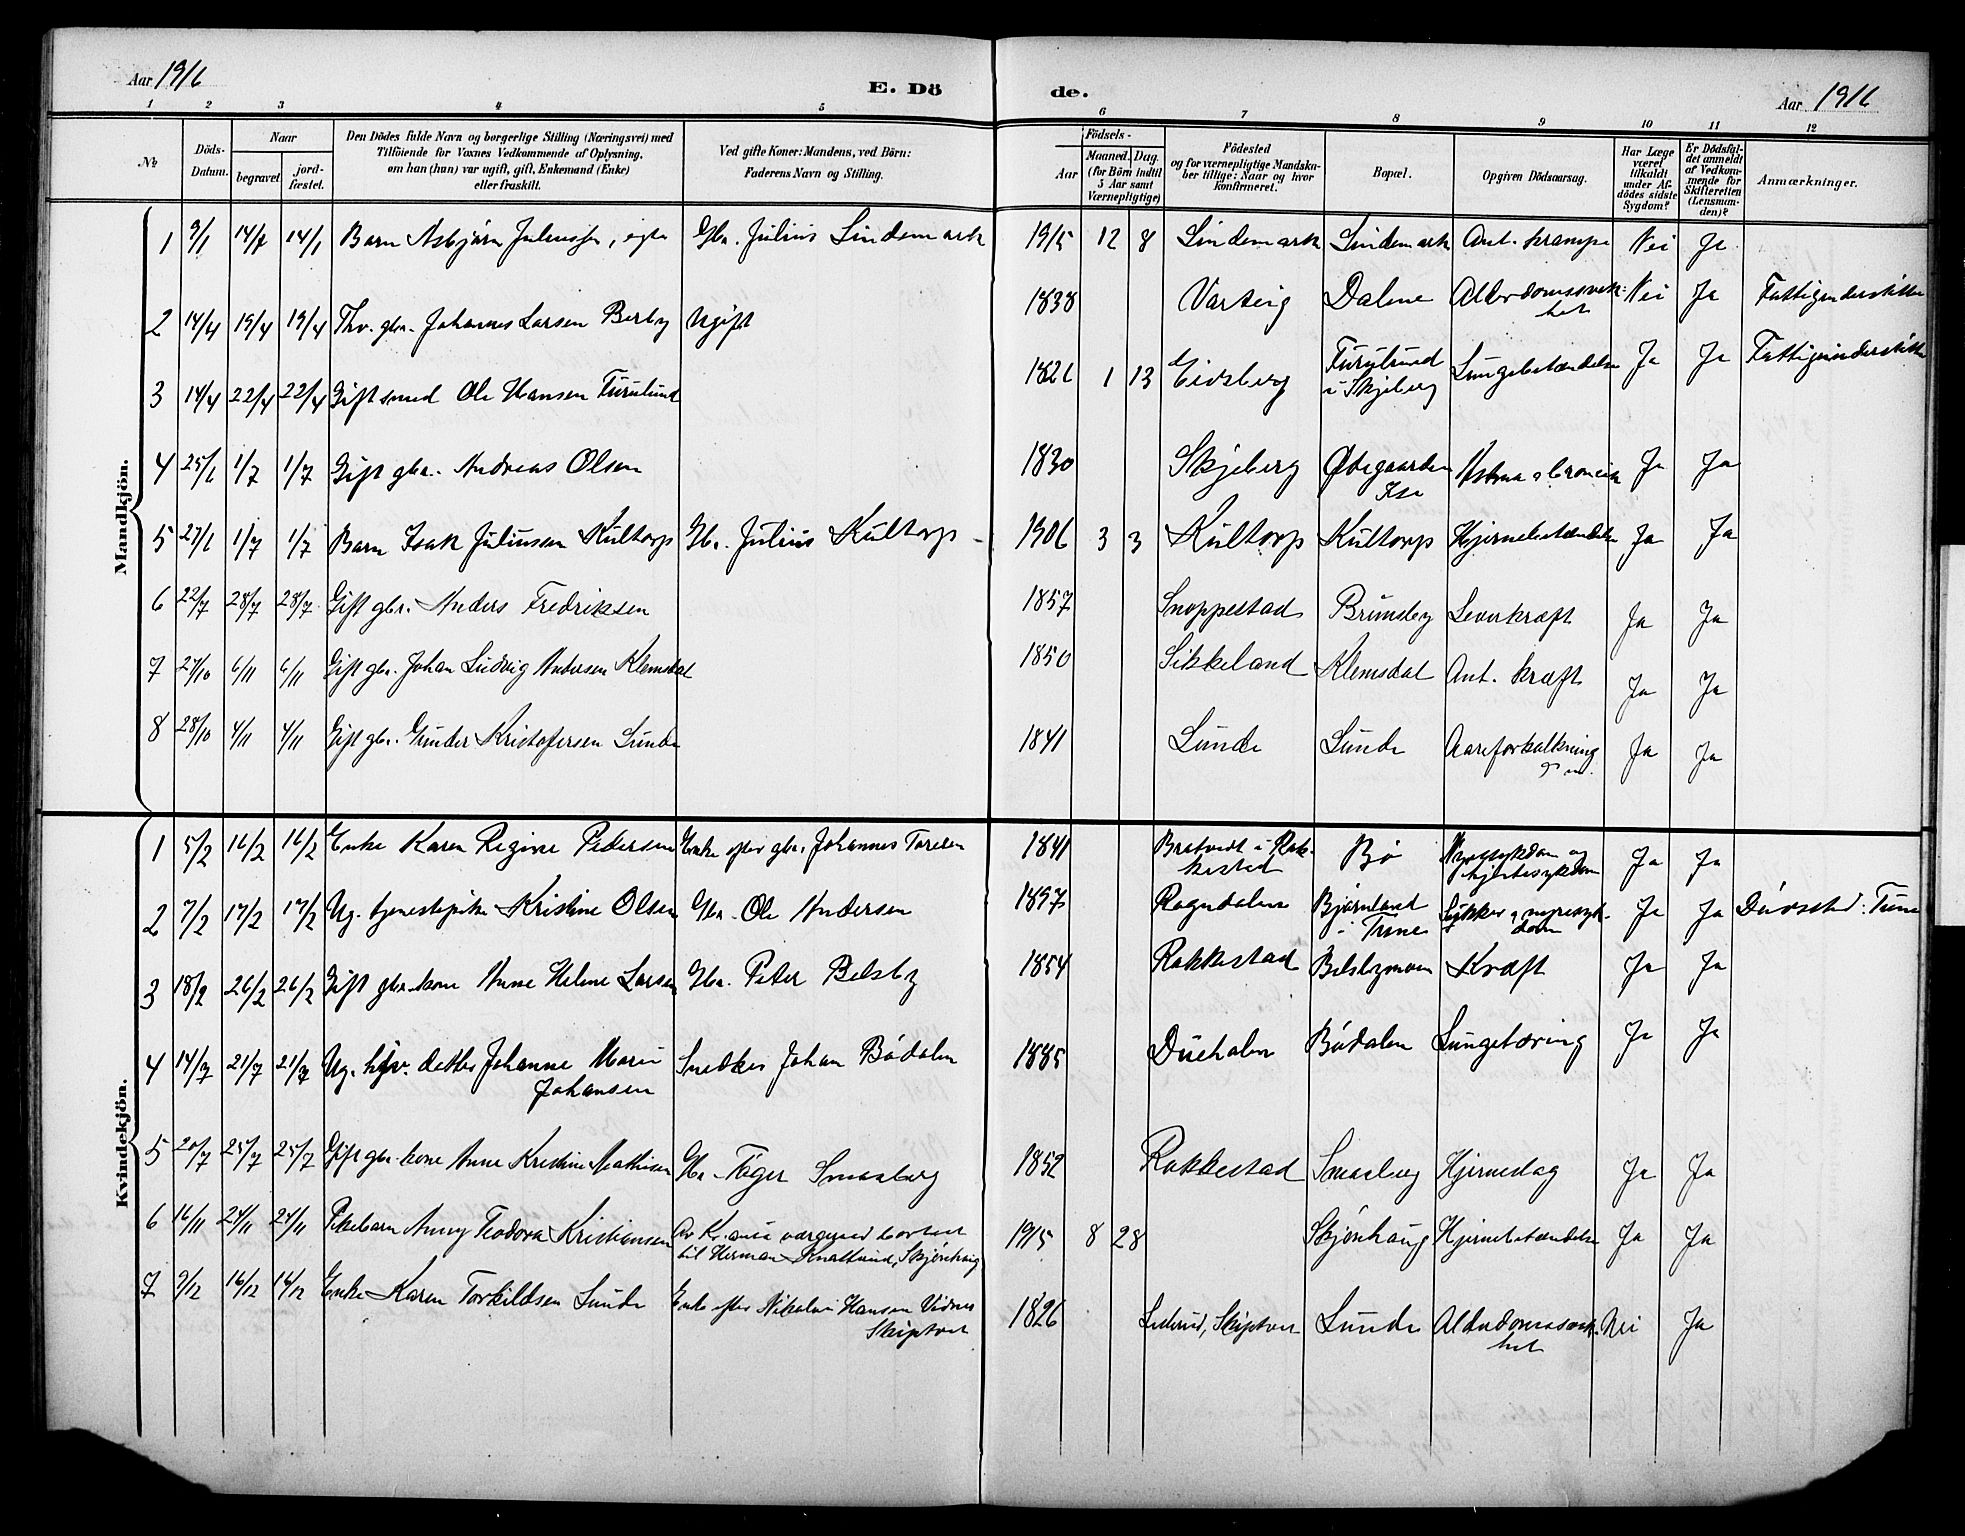 Aar 1916
E. Dö
de.
Aar 1916
1 2 3 4 5 6 7 8 9 10 11 12
№ Döds-Datum. Naar begravet. jord-fæstet. Den Dödes fulde Navn og borgerlige Stilling (Næringsvei) med Tilföiende for Voxnes Vedkommende af Oplysning, om han (hun) var ugift, gift, Enkemand (Enke) eller fraskilt. Ved gifte Koner: Mandens, ved Börn: Faderens Navn og Stilling. Födsels- Aar Maaned. Dag. (for Börn indtil 5 Aar samt Værnepligtige) Födested og for værnepligtige Mandska-ber tillige: Naar og hvor konfirmeret. Bopæl. Opgiven Dödsaarsag. Har Læge været tilkaldt under Af-dödes sidste Sygdom? Er Dödsfal-det anmeldt af Vedkom-mende for Skifteretten (Lensman-den)? Anmærkninger.
Mandkjön.
1 9/1 14/1 14/1 Barn Asbjørn Juliussen, egte Gbr. Julius Lindemark 1915 12 8 Lindemark Lindemark Ant. krampe Nei Ja
2 14/4 19/4 19/4 Fhv. gbr. Johannes Larsen Berby Ugift 1838 Varteig Dalene Alderdomssvak-het Nei Ja Fattigunderstøttet
3 14/4 22/4 22/4 Gift smed Ole Hansen Furulund 1826 1 13 Eidsberg Furulund i Skjeberg Lungebetændelse Ja Ja Fattigunderstøttet
4 25/6 1/7 1/7 Gift gbr. Andreas Olsen 1830 Skjeberg Ødegaarden Ise Astma Ja Ja
5 27/6 1/7 1/7 Barn Isak Juliussen Kultorp Gbr. Julius Kultorp 1906 3 3 Kultorp Kultorp Hjernebetændelse Ja Ja
6 22/7 28/7 28/7 Gift gbr. Anders Fredriksen 1857 Snoppestad Brunsby Leverkræft Ja Ja
7 27/10 6/11 6/11 Gift gbr. Johan Ludvig Andersen Klemsdal 1850 Sikkeland Klemsdal Ant. kræft Ja Ja
8 28/10 4/11 4/11 Gift gbr. Gunder Kristofersen Lunde 1841 Lunde Lunde Aareforkalkning Ja Ja
Kvindekjön.
1 5/2 16/2 16/2 Enke Karen Regine Pedersen Enke efter gbr. Johannes 1841 Bratvedt i Rak-kestad Bø Nyresykdom og hjertesykdom Ja Ja
2 7/2 17/2 17/2 Ug. tjenestepike Kristine Olsen Gbr. Ole Andersen 1897 Bjørnland i Tune Sukker og nyresyk-dom Ja Ja Dødssted: Tune
3 18/2 26/2 26/2 Gift gbr. kone Anne Helene Larsen Gbr. Peter Belsby 1854 Rakkestad Belsbymoen Kræft Ja Ja
4 14/7 21/7 21/7 Ug. hjv. datter Johanne Marie Johansen Snedker Johan Bødalen 1885 Duehalen Bødalen Lungetæring Ja Ja
5 20/7 25/7 25/7 Gift gbr. kone Anne Kristine Mathisen Gbr. Tøger Smaaberg 1852 Rakkestad Smaaberg Hjerneslag Ja Ja
6 16/11 24/11 24/11 Pikebarn Anny Teodora Kristiansen Av Kr.ania værgeraad bortsat til Herman Knatterud, Skjønhaug 1915 8 28 Skjønhaug Hjernebetændelse Ja Ja
7 9/12 16/12 16/12 Enke Karen Torkildsen Lunde Enke efter Nikolai Hansen Vidnes Skiptvet 1826 Skiptvet Lunde Alderdomssvak-het Nei Ja